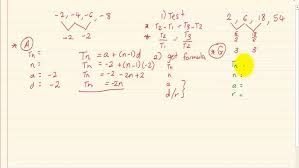 -2, -4, -6, -8
-2 -2
* (A)
Tn =
n =
a = -2
d = -2
Tn = a + (n-1)d
Tn = -2 + (n-1)(-2)
= -2 -2n + 2
Tn = -2n
1) Test
* T2 - T1 = T3 - T2
* T2/T1 = T3/T2
2) get formula
Tn
n
a
d/r
2, 6, 18, 54
3 3
* (G)
Tn =
n =
a =
r =